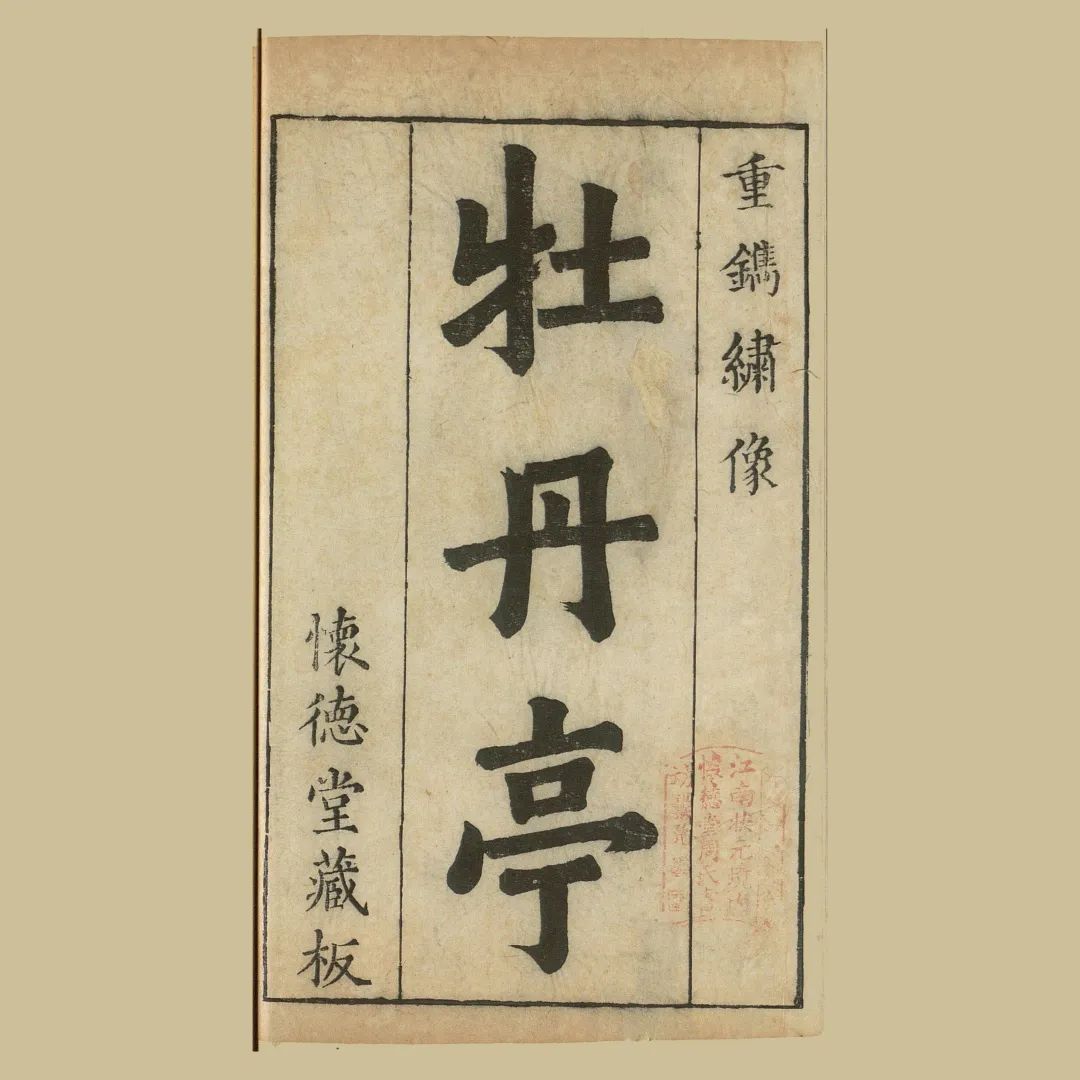 重鐫繡像
牡丹亭
懷德堂藏板
江南狀元
懷德堂周氏